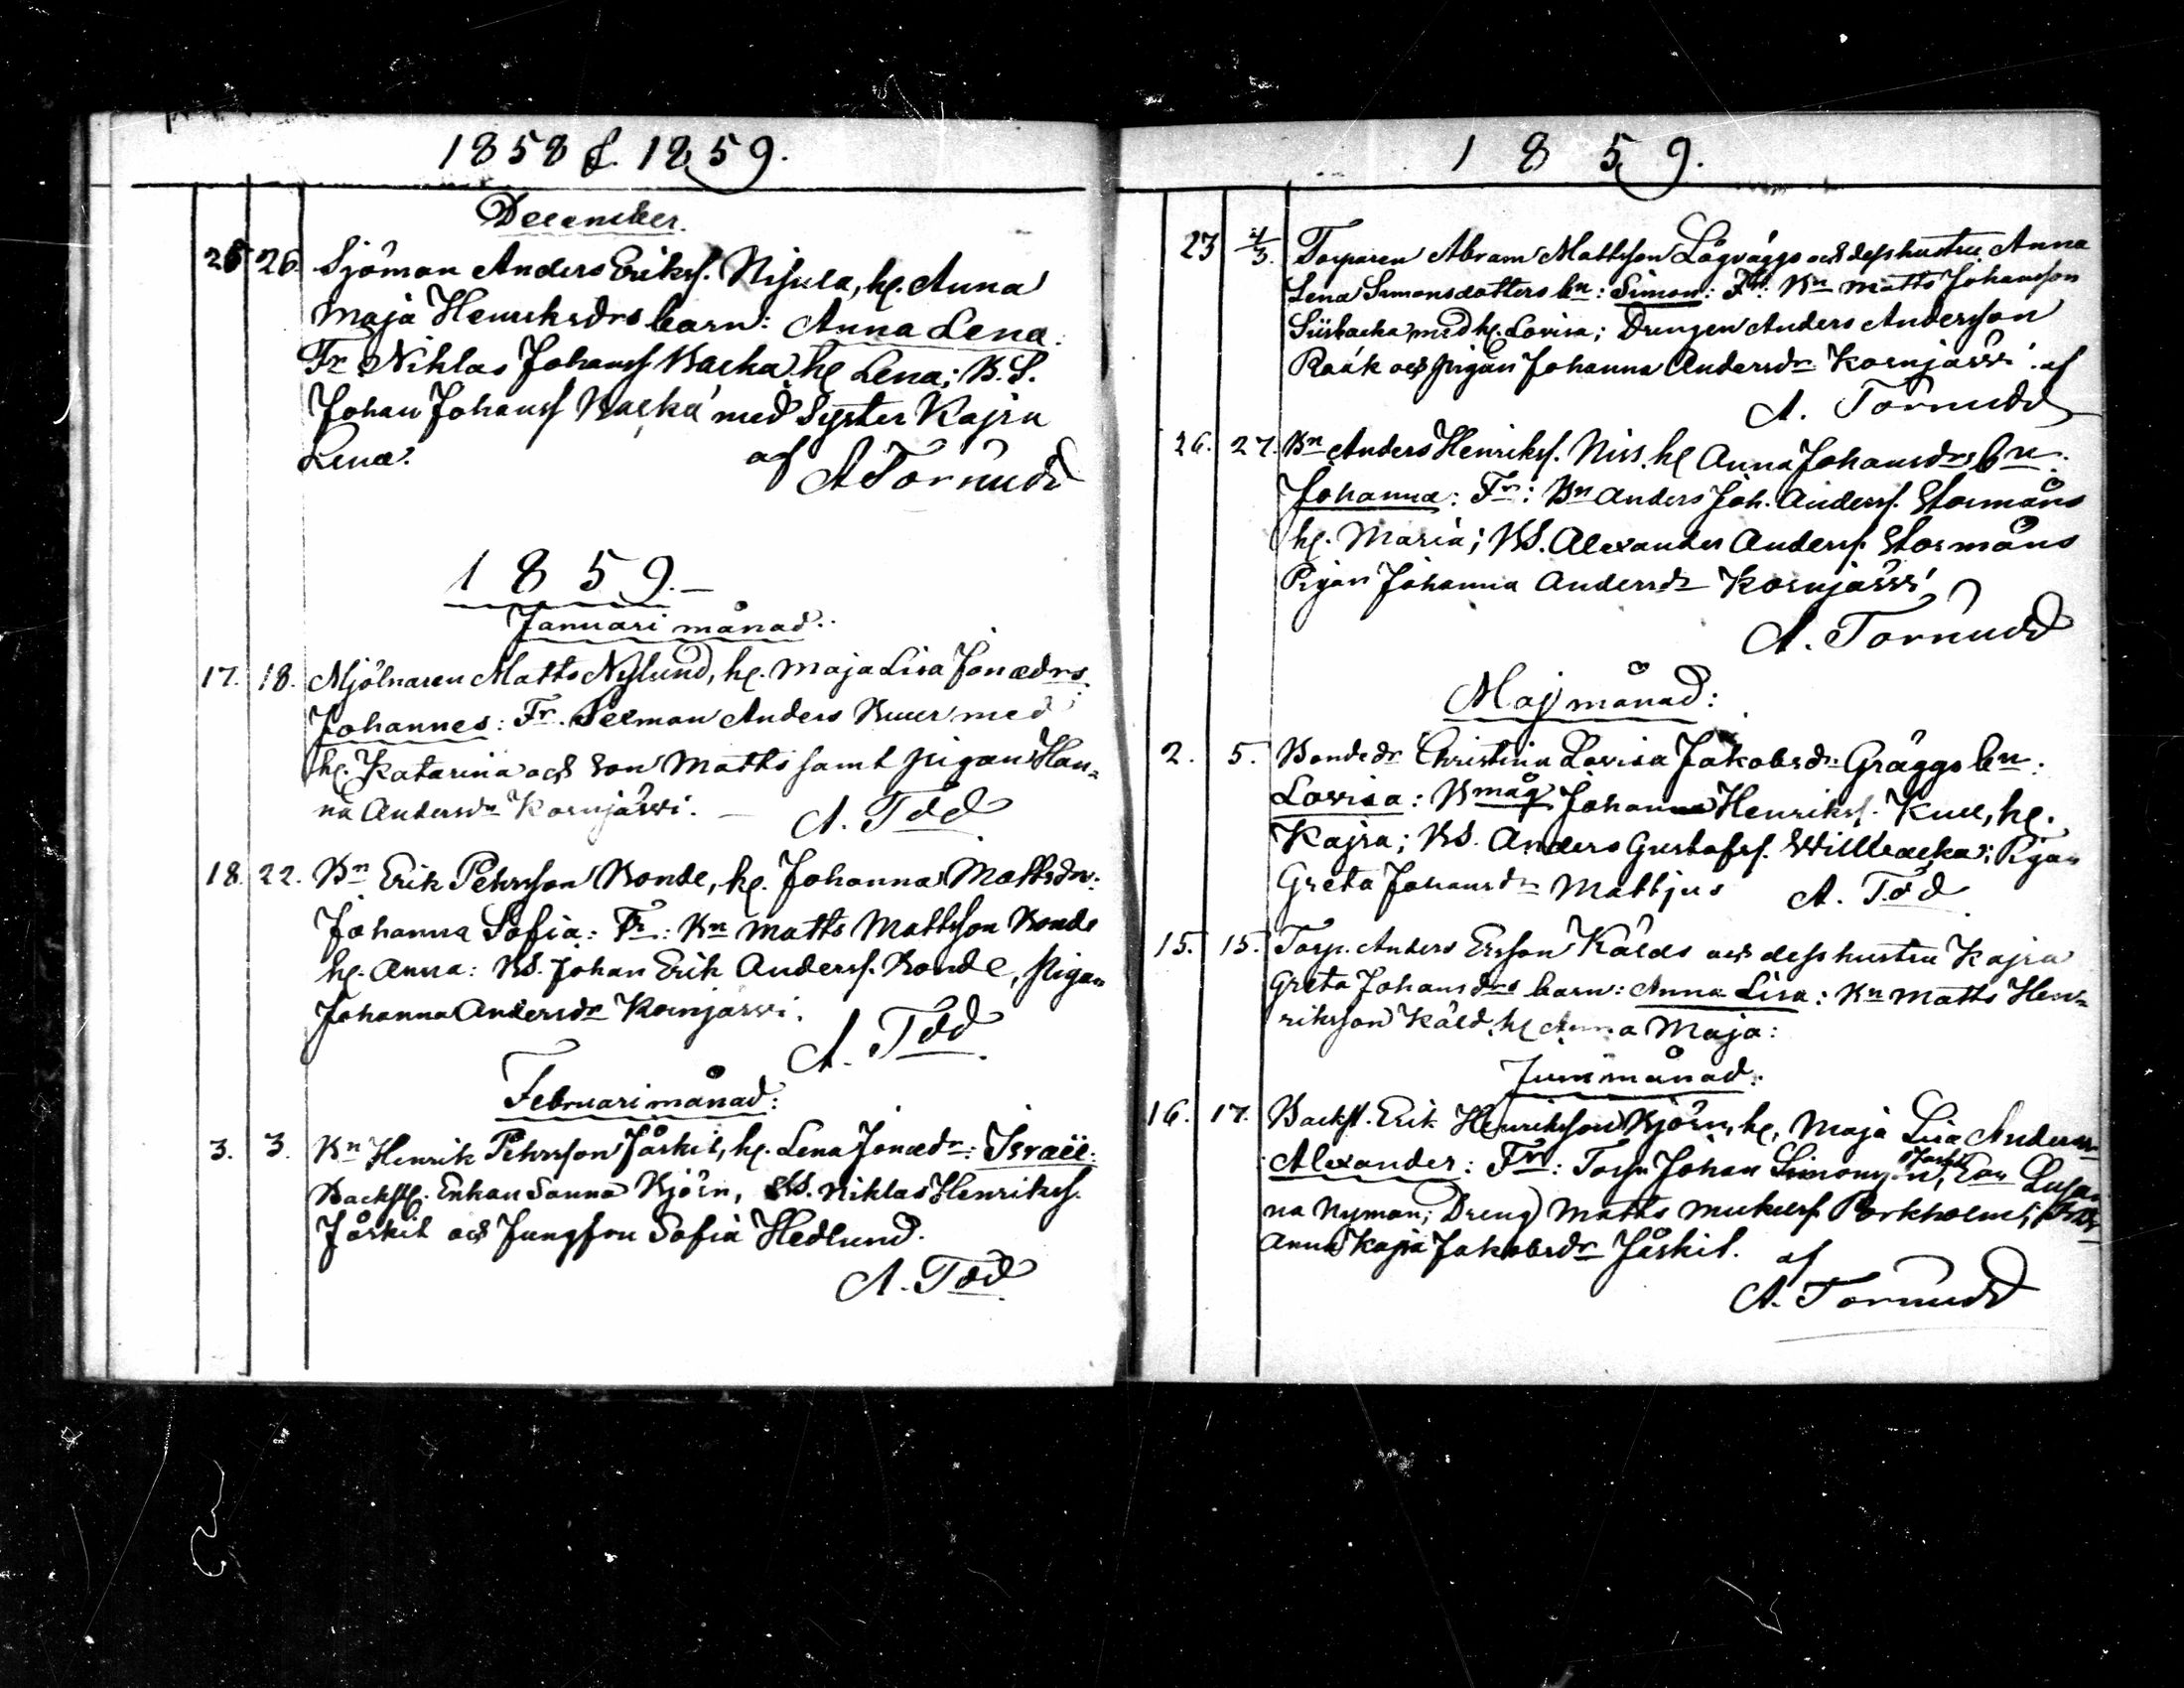 1858 & 1859.
December.
25 26. Sjöman Anders Eriksf. Nisula, h. Anna
Maja Henriksdrs barn: Anna Lena.
Fr Niklas Johansf Backa h Lena; B.S.
Johan Johansf Backa med Syster Kajsa
Lena.
af A Törnudd
1859.
Januari månad.
17. 18. Mjölnaren Matts Nylund, h. Maja Lisa Jonædrs
Johannes: Fr. Seeman Anders Kuur med
h. Katarina och Son Matts samt pigan Han=
na Andersdr Kornjärvi.
A. Tdd
18. 22. Bn Erik Pehrsson Bonde, h. Johanna Mattsdr:
Johanna Sofia: Fr: Bn Matts Mattsson Bonde
h. Anna: BS. Johan Erik Andersf. Bonde, Pigan
Johanna Andersdr Kornjärvi.
A. Tdd
Februari månad:
3. 3. Bn Henrik Pehrsson Jåskil, h. Lena Jonædr: Israël:
Backst. Enkan Sanna Björn, BS. Niklas Henriksf.
Jåskil och Jungfru Sofia Hedlund.
A. Tdd
1859.
23 4/3. Torparen Abram Mattsson Lågväggs och dess hustru Anna
Lena Simonsdotters bn: Simon: Fr: Bn Matts Johansson
Siisbacka med h. Lovisa; Drengen Anders Andersson
Raák och pigan Johanna Andersdr Kornjärvi af
A. Törnudd
26. 27. Bn Anders Henriksf. Niss, h Anna Johansdrs bn.
Johanna: Fr: Bn Anders Joh. Andersf. Stormåns
h. Maria; BS. Alexander Andersf. Stormåns
Pigan Johanna Andersdr Kornjärvi
A. Törnudd
Maj månad:
2. 5. Bondedr Christina Lovisa Jakobsdr Gräggs bn:
Lovisa: Bmåg Johan Henriksf. Kull, h.
Kajsa; BS. Anders Gustafsf. Willbacka; Pigan
Greta Johansdr Mattjus A. Tdd
15. 15. Torp. Anders Ersson Kälds och dess hustru Kajsa
Greta Johansdrs barn: Anna Lisa: Bn Matts Hen=
riksson Käld, h Anna Maja:
Juni månad:
16. 17. Backst. Erik Henriksson Björn, h. Maja Lisa Andersdr
Alexander: Fr: Torp. Johan Simons Jåskil, Susan
na Nyman; Dreng Matts Mickelsf. Porkholm;
Anna Kajsa Jakobsdr Jåskil. af
A. Törnudd